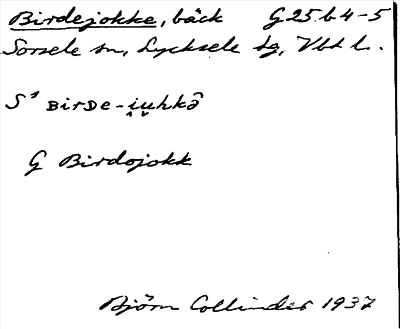 Birdejokke, bäck G25b4-5
Sorsele sn, Lycksele lg, Vbt l.
S¹ BIRDE-i̭u̬hkā̂
G Birdojokk
Björn Collinder 1937